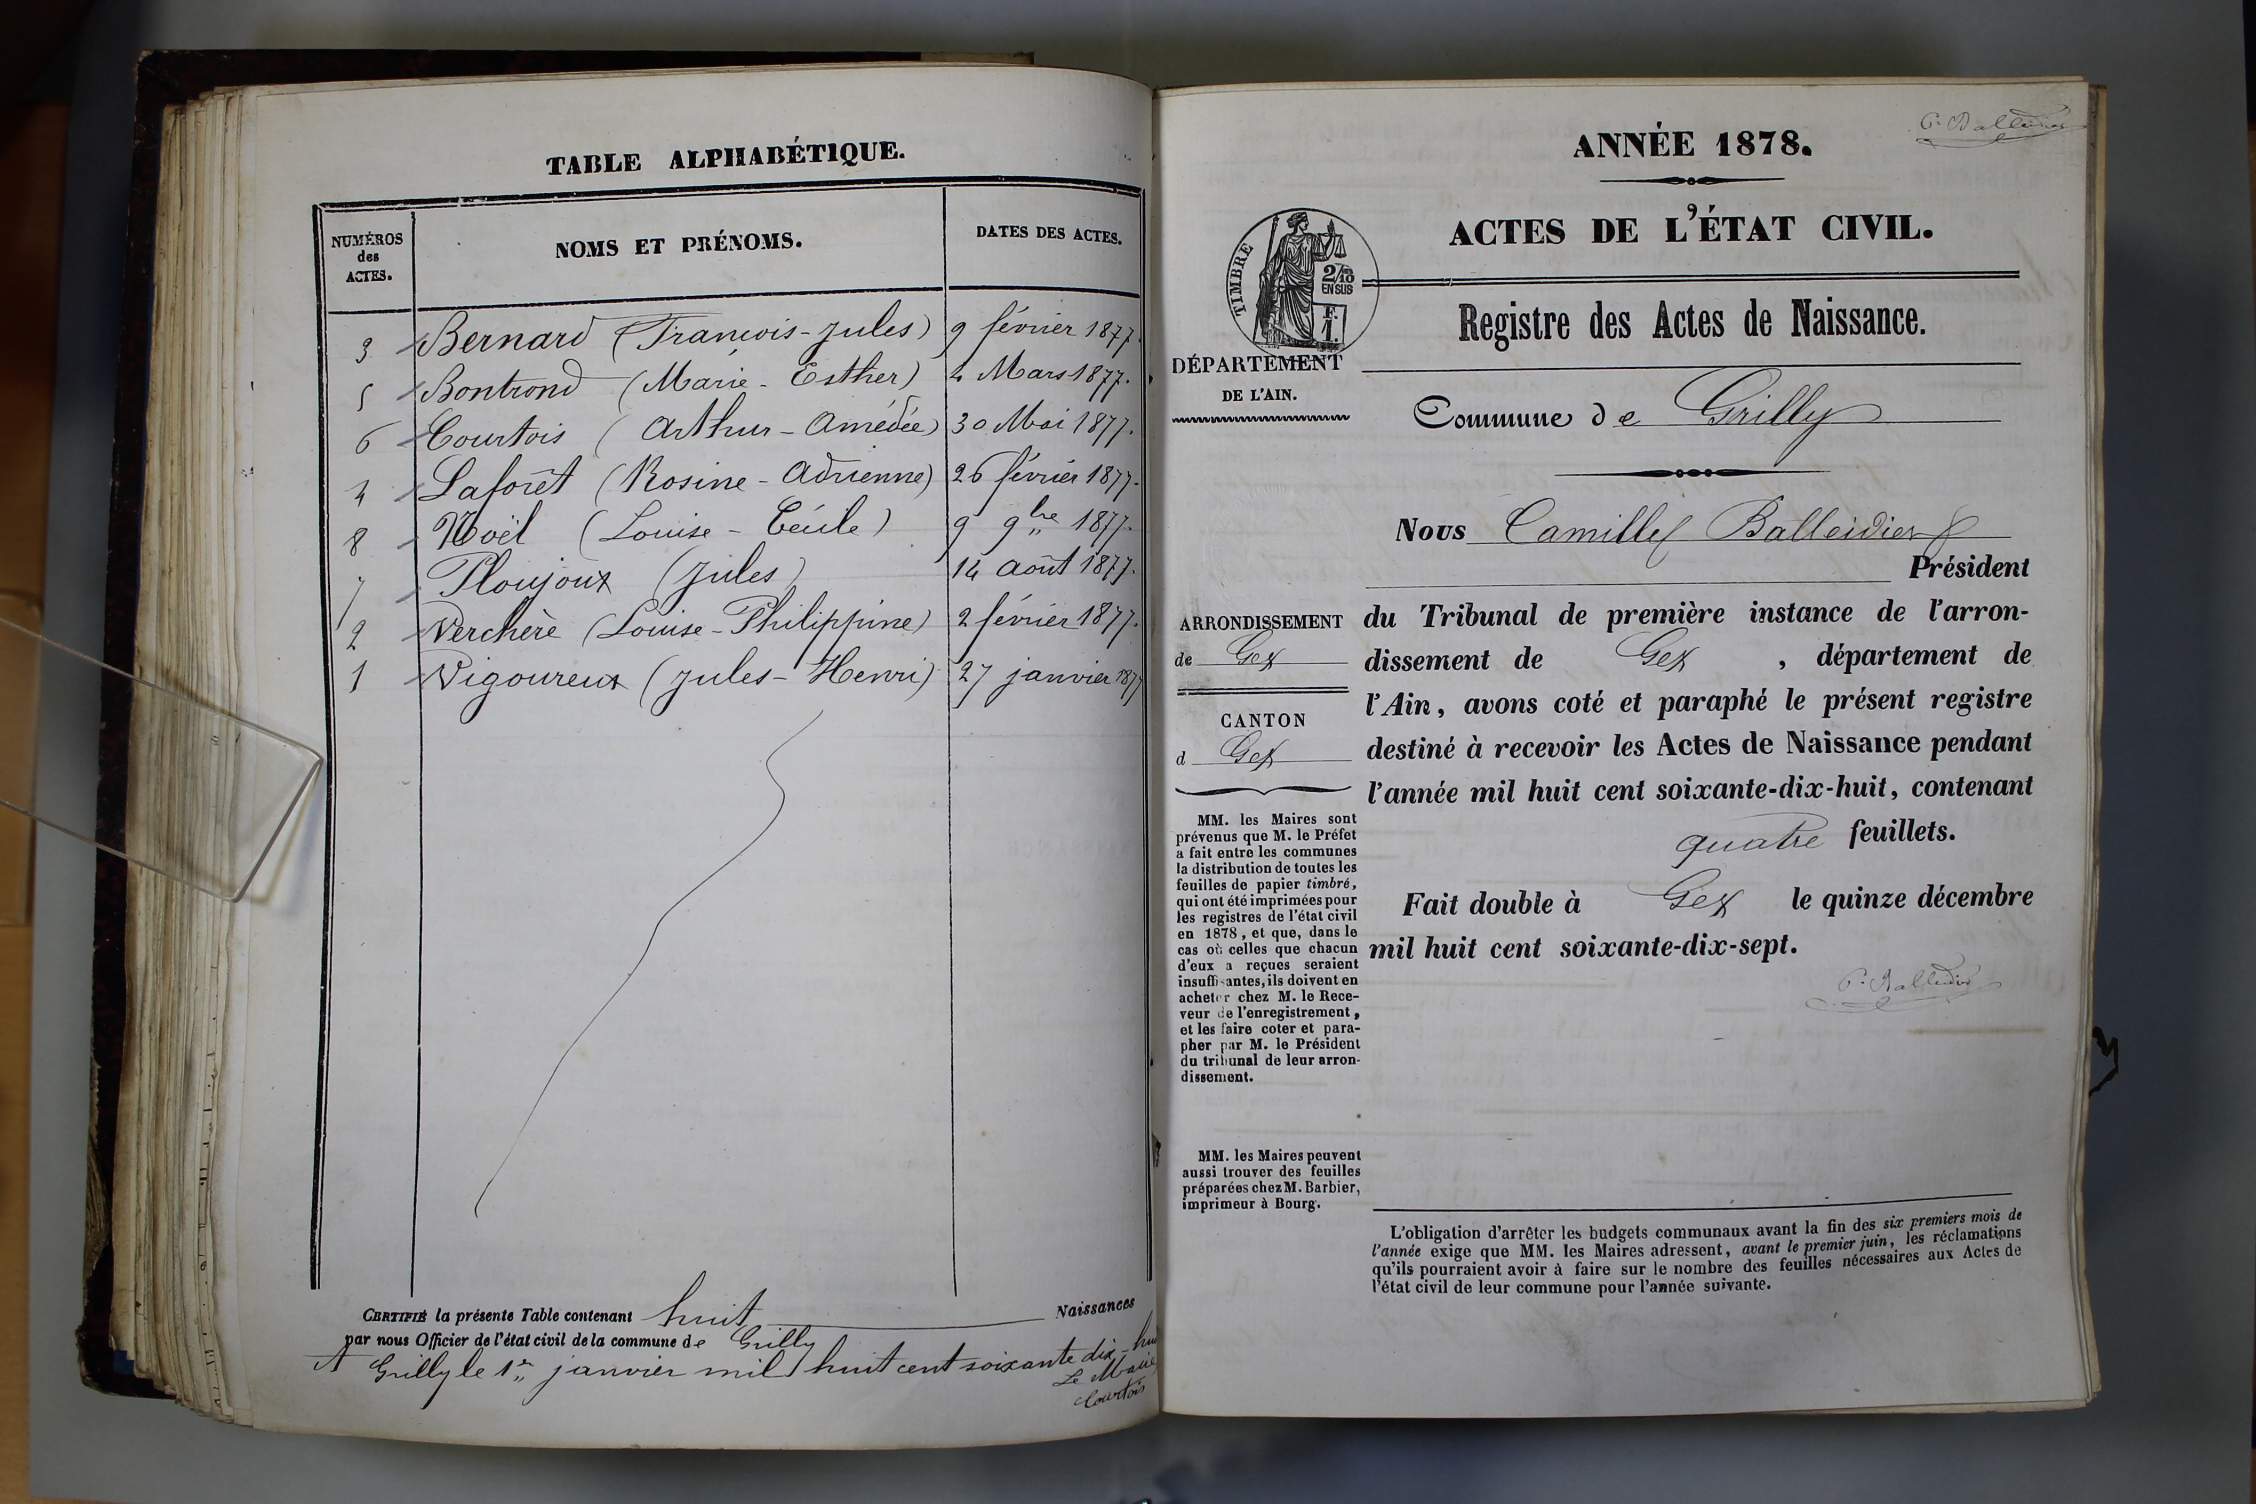 TABLE ALPHABÉTIQUE.
NUMÉROS
des
ACTES.
NOMS ET PRÉNOMS.
DATES DES ACTES.
3 Bernard (François-Jules) 9 février 1877.
5 Bontrond (Marie-Esther) 4 Mars 1877.
6 Courtois (Arthur-Amédée) 30 Mai 1877.
4 Laforêt (Rosine-Adrienne) 26 février 1877.
8 Noël (Louise-Cécile) 9 9bre 1877.
7 Ploujoux (Jules) 14 août 1877.
2 Verchère (Louise-Philippine) 2 février 1877.
1 Vigoureux (Jules-Henri) 27 janvier 1877
CERTIFIÉ la présente Table contenant huit Naissances
par nous Officier de l'état civil de la commune de Grilly
A Grilly le 1er janvier mil huit cent soixante dix-huit
Le Maire
Courtois
C. Balleidier
ANNÉE 1878.
ACTES DE L'ÉTAT CIVIL.
TIMBRE
2/10
EN SUS
F.
1.
Registre des Actes de Naissance.
DÉPARTEMENT
DE L'AIN.
Commune de Grilly
Nous Camille Balleidier
Président
ARRONDISSEMENT
de Gex
CANTON
d Gex
MM. les Maires sont
prévenus que M. le Préfet
a fait entre les communes
la distribution de toutes les
feuilles de papier timbré,
qui ont été imprimées pour
les registres de l'état civil
en 1878, et que, dans le
cas où celles que chacun
d'eux a reçues seraient
insuffisantes, ils doivent en
acheter chez M. le Rece-
veur de l'enregistrement,
et les faire coter et para-
pher par M. le Président
du tribunal de leur arron-
dissement.
MM. les Maires peuvent
aussi trouver des feuilles
préparées chez M. Barbier,
imprimeur à Bourg.
du Tribunal de première instance de l'arron-
dissement de Gex, département de
l'Ain, avons coté et paraphé le présent registre
destiné à recevoir les Actes de Naissance pendant
l'année mil huit cent soixante-dix-huit, contenant
quatre feuillets.
Fait double à Gex le quinze décembre
mil huit cent soixante-dix-sept.
C. Balleidier
L'obligation d'arrêter les budgets communaux avant la fin des six premiers mois de
l'année exige que MM. les Maires adressent, avant le premier juin, les réclamations
qu'ils pourraient avoir à faire sur le nombre des feuilles nécessaires aux Actes de
l'état civil de leur commune pour l'année suivante.